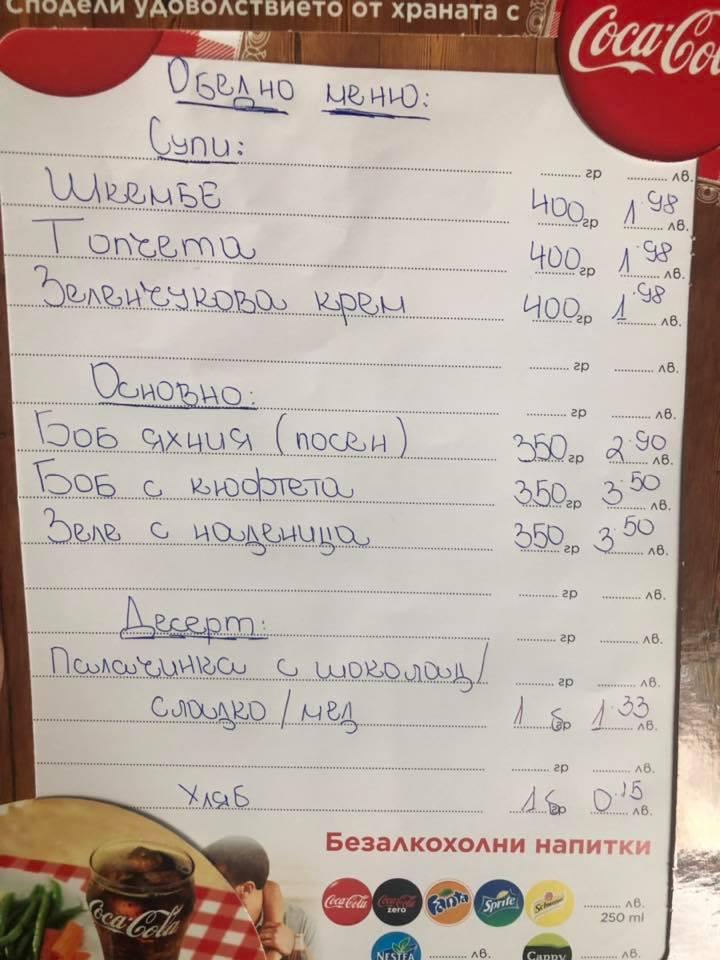 Сподели удоволствието от храната с
Coca-Col
Обедно меню:
Супи:
гр лв.
Шкембе 400 гр 1.98 лв.
Топчета 400 гр 1.98 лв.
Зеленчукова крем 400 гр 1.98 лв.
гр лв.
Основно: гр лв.
Боб яхния (постен) 350 гр 2.90 лв.
Боб с кюфтета 350 гр 3.50 лв.
Зеле с наденица 350 гр 3.50 лв.
гр лв.
Десерт: гр лв.
Палачинка с шоколад/ гр лв.
сладко/мед 1 б гр 1.33 лв.
гр лв.
Хляб 1 б гр 0.15 лв.
Безалкохолни напитки
Coca-Cola Coca-Cola zero Fanta Sprite Schweppes лв.
250 ml
Coca-Cola
NESTEA лв. Cappy лв.